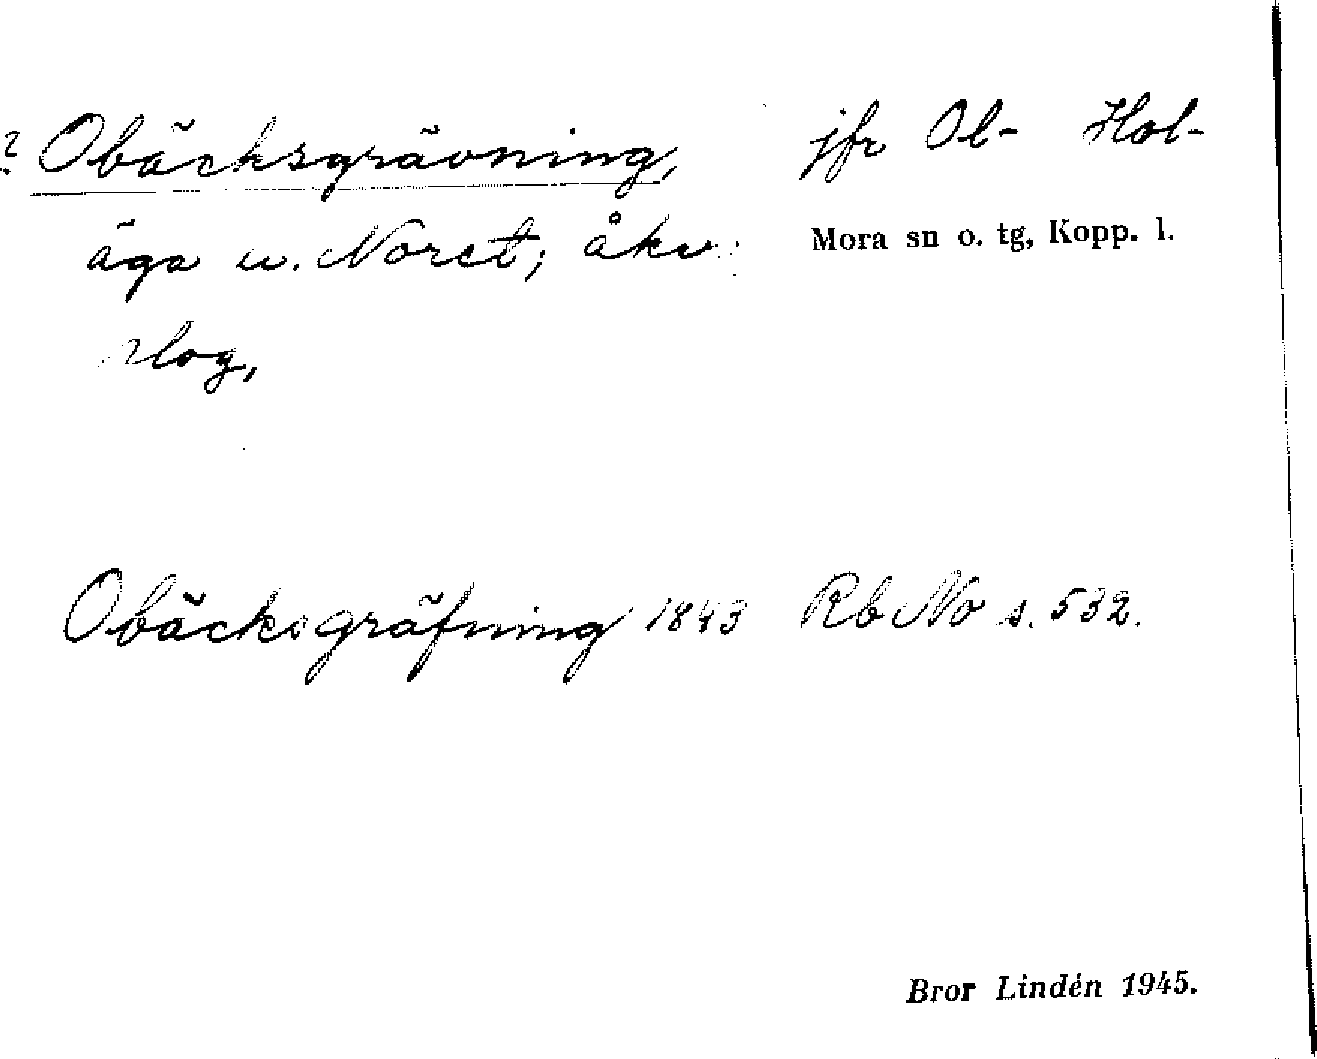 ? Obäcksgrävning, jfr Ol- Hol-
äga u. Noret; åker Mora sn o. tg, Kopp. l.
slog,
Obäcksgräfning 1843 Rb No s. 532.
Bror Lindén 1945.